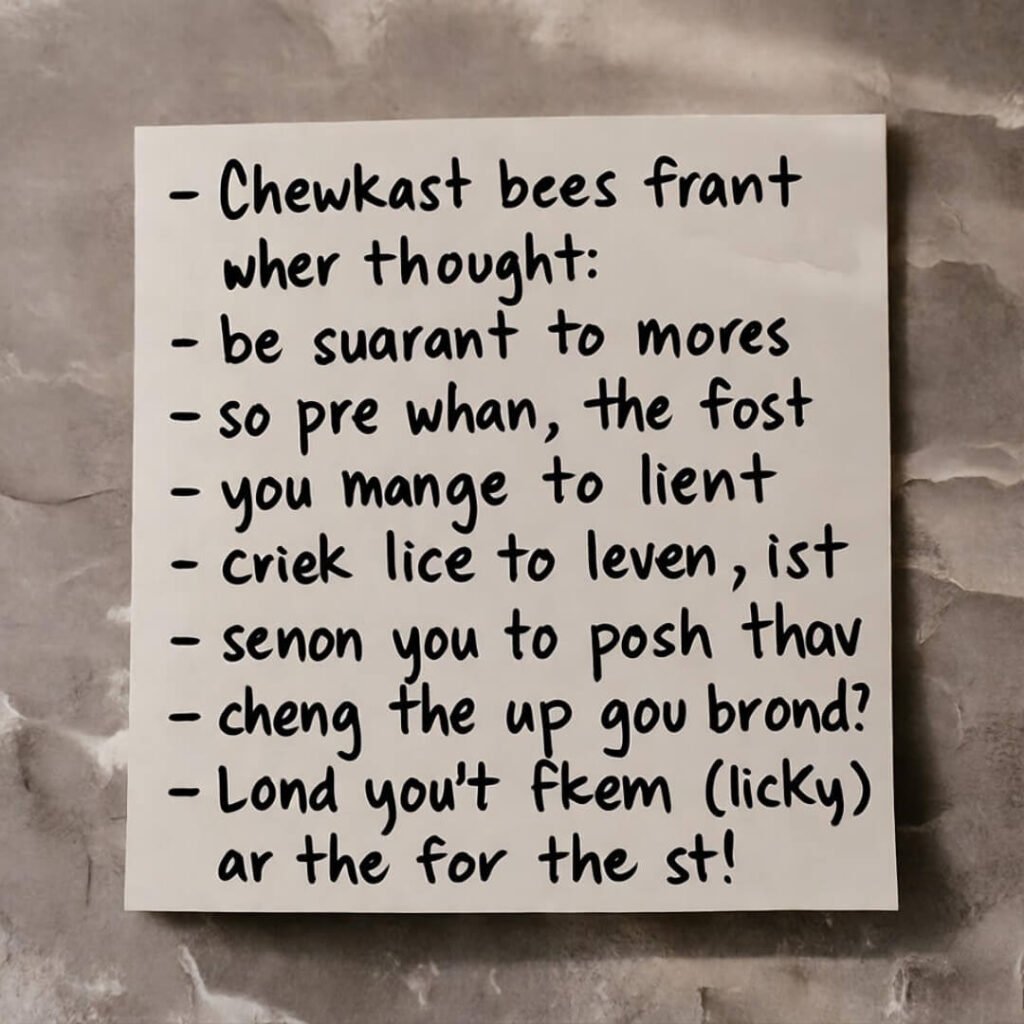 - Chewkast bees frant
wher thought:
- be suarant to mores
- so pre whan, the fost
- you mange to lient
- criek lice to leven, ist
- senon you to posh thav
- cheng the up gou brond?
- Lond you't fkem (licky)
ar the for the st!